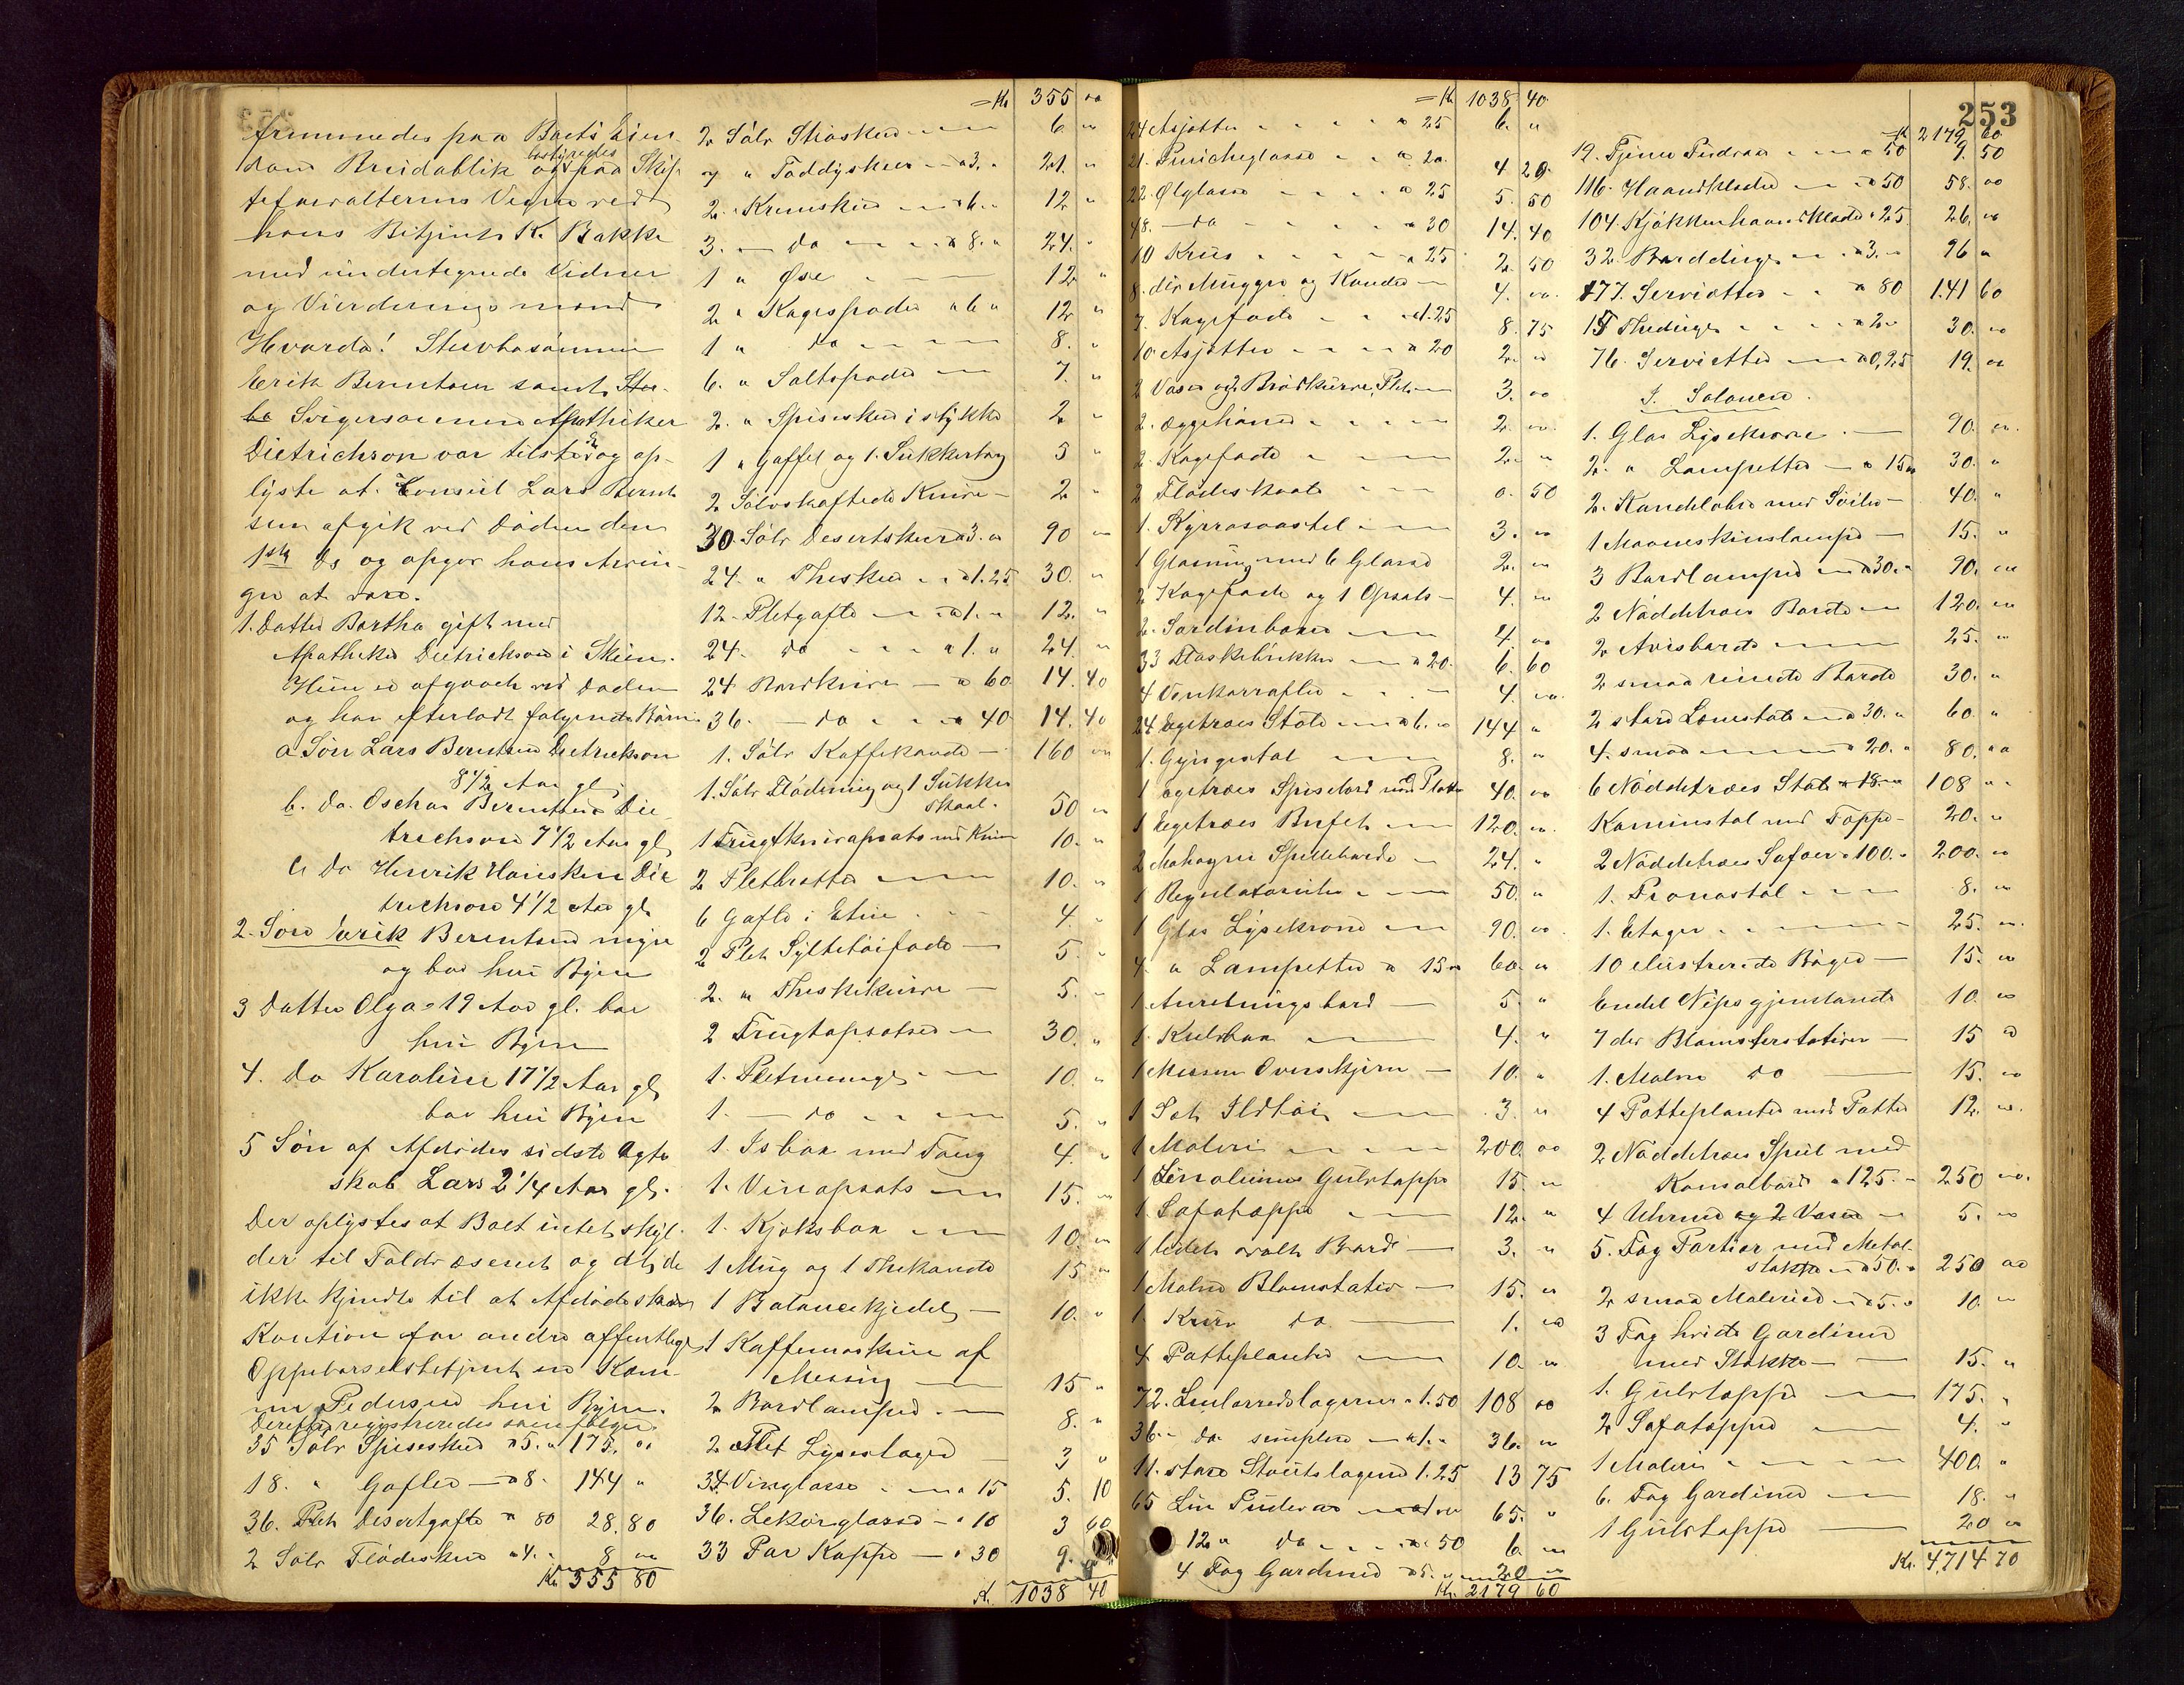 fremmedes paa Boets Eien-
dom Breidablik og bestyredes paa Skif-
teforvalterens Vegne ved
hans Betjent K. Bakke
med undertegnede Vidner
og Vurderingsmænd
Hvorda! Stervbosønnen
Erik Berentsen samt Ster-
bo Svigersønnen Apotheker
Dietrichson var tilstede og op-
lyste at Consul Lars Bernt
sen afgik ved Døden den
1ste ds og opgav hans Arvin-
ger at være.
1. Datter Bertha gift med
Apotheker Dietrichson i Skien.
Hun er afgaaet ved Døden
og har efterladt følgende Børn:
a Søn Lars Berentsen Dietrichson
8 1/2 Aar gl.
b. do. Oschar Berentsen Die-
trichson 7 1/2 Aar gl.
c. do Henrik Die
trichson 4 1/2 Aar gl.
2. Søn Erik Berentsen myn.
og bor hui Byen
3 Datter Olga = 19 Aar gl. bor
hui Byen
4. do Karoline 17 1/2 Aar gl.
bor hui Byen
5 Søn af Afdødes sidste Ægte
skab Lars 2 1/4 Aar gl.
Der oplystes at Boet intet skyl-
der til Toldvæsenet og at de
ikke kjendte til at Afdøde skrev
Kaution for andre offentlige
Oppebørselsbetjent en Kom-
ne Pedersen hui Byen.
Derefter registreredes som følger
35 Sølv Spiseskeer a 5. " 175. oo
18. " Gafler — a 8. 144 "
36. Plet Desertgafle a 80 28. 80
2 Sølv Flødeskeer a 4. " 8 oo
Kr 355 80
= Kr 355 oo
2 Sølv Strøskeer 6. "
7 " Toddyskeer — a 3. " 21. "
2. " Kremskeer — a 6. " 12 "
3. — do — a 8. " 24. "
1 " Øse 12 "
2 " Kagespader a 6 " 12 "
1 " do 8. "
6. " Saltspader 7. "
2. " Spiseskeer i stykke 2 "
1 " Gaffel og 1. Sukkertang 5 "
2 Sølvskaftede Knive — 2 "
30. Sølv Desertskeer a 3. " 90 "
24. " Theskeer — a 1.25 30. "
12. Pletgafle — a 1. " 12. "
24. do a 1. " 24. "
24 Bordknive — a 60 14. 40
36. — do a 40 14. 40
1. Sølv Kaffekande — 160 "
1. Sølv Flødemug og 1 Sukker
skaal. 50 "
1 Frugtknivopsats med Knive 10. "
2 Pletbretter 10. "
6 Gafle i Etui 4. "
2 Plet Syltetøifade — 5. "
2. " Theskekurve — 5. "
2 Frugtopsatser 30. "
1. Pletmenage 10. "
1. — do 5. "
1. Isboxe med Tang 4. "
1. Vinopsats 15. "
1. Kjeksbox 10. "
1 Mug og 1 Thekande 15 "
1 Balancekjedel — 10. "
1 Kaffemaskine af
Messing 15 "
2 Bordlamper 8. "
2 Plet Lysestager 3 "
34 Vinglasse — a 15 5. 10
36. Lekørglasse — a 10 3 60
33 Par Kopper — a 30 9.
Kr. 1038 40
= Kr 1038 40
24 Asjetter a 25 6. "
21. Puncheglasse a 20. 4 20
22. Ølglasse a 25 5. 50
48. — do a 30 14. 40
10 Krus a 25 2. 50
8. div Mugger og Kander — 4. oo
7. Kagefade a 1.25 8. 75
10 Asjetter a 20 2. "
2 Vaser og 2 Brødkurve, Plet 3. oo
2. Æggehøner 2. oo
2. Kagefade 2. "
2 Flødeskaale 0. 50
1. 3. oo
1 Glasmug med 6 Glasse 2. "
2 Kagefade og 1 Opsats — 4. "
2. Sardinboxer 4. oo
33 Flaskebrikker a 20. 6. 60
4 Vinkarafler 4. oo
24 Egetræes Stole a 6. " 144 "
1. Gyngestol 8. "
1 Egetræes Spisebord med Plader 40. oo
1 Egetræes Bufet 120. oo
2 Mahogni Spilleborde — 24. "
1 Regulatoruhr 50. "
1 Glas Lysekrone 90. oo
4. " Lampetter a 15 " 60. "
1 Anretningsbord — 5. "
1. Kulbox 4. "
1 Messen Ovnskjerm — 10. "
1 Sæt Ildtøi 3. "
1 Maleri 200. oo
1 Linoleums Gulvteppe 15 "
1 Sofateppe 12. "
1 lidet ovalt Bord — 3. "
1 Malm Blomstativ — 15. "
1. Kurv do 1. oo
4 Potteplanter 10. "
72. Linlerredslagener a 1.50 108 oo
36. — do simplere — a 1. " 36. "
11. store Stoutslagener 1.25 13 75
65 Lin Pudevar — a 1 oo 65. "
12 " do a 50 6. "
4 Fag Gardiner a 5. " 20 "
Kr. 2179 60
253
Kr 2179 60
19. Tjener Pudevar a 50 9. 50
116. Haandklæder a 50 58. oo
104. Kjøkkenhaandklæder a 25 26. oo
32. Borddug a 3. " 96 "
177. Servietter a 80 141 60
15 Theduge a 2 " 30. oo
76. Servietter — a 0,25 19. oo
I. Salonen.
1. Glas Lysekrone — 90. oo.
2. " Lampetter — a 15 " 30. "
2. Kandelabre med Søiler — 40. "
1 Maaneskinslampe — 15. "
3 Bordlamper a 30. " 90. oo
2 Nøddetræes Borde 120. oo
2 Avisborde 25. "
2 smaa runde Borde 30. "
2 store Lænestole a 30. " 60. "
4. smaa a 20. " 80. oo
6 Nøddetræes Stole a 18. " 108 "
Kaminstol med Teppe — 20. "
2 Nøddetræes Sofaer a 100. " 200. "
1. Pianostol 8. "
1. Etager 25. "
10 elustrerede Bøger — 15. "
Endel Nipsgjenstande 10. oo
7 div Blomsterstativer — 15 "
1. Malm do 15. oo
4 Potteplanter med Potter 12. "
2 Nøddetræes Speil med
Konsolbord a 125. — 250 oo.
4 Uhrne og 2 Vaser 5. "
5. Fag Portier med Metal-
stokke a 50. " 250 oo
2 smaa Malerier a 5. " 10 "
3 Fag hvide Gardiner
med Stokke — 15. "
1. Gulvteppe 175. "
2 Sofatepper 4. "
1 Maleri 400. "
6. Fag Gardiner 18. "
1 Gulvteppe 20 "
Kr. 4,714 70